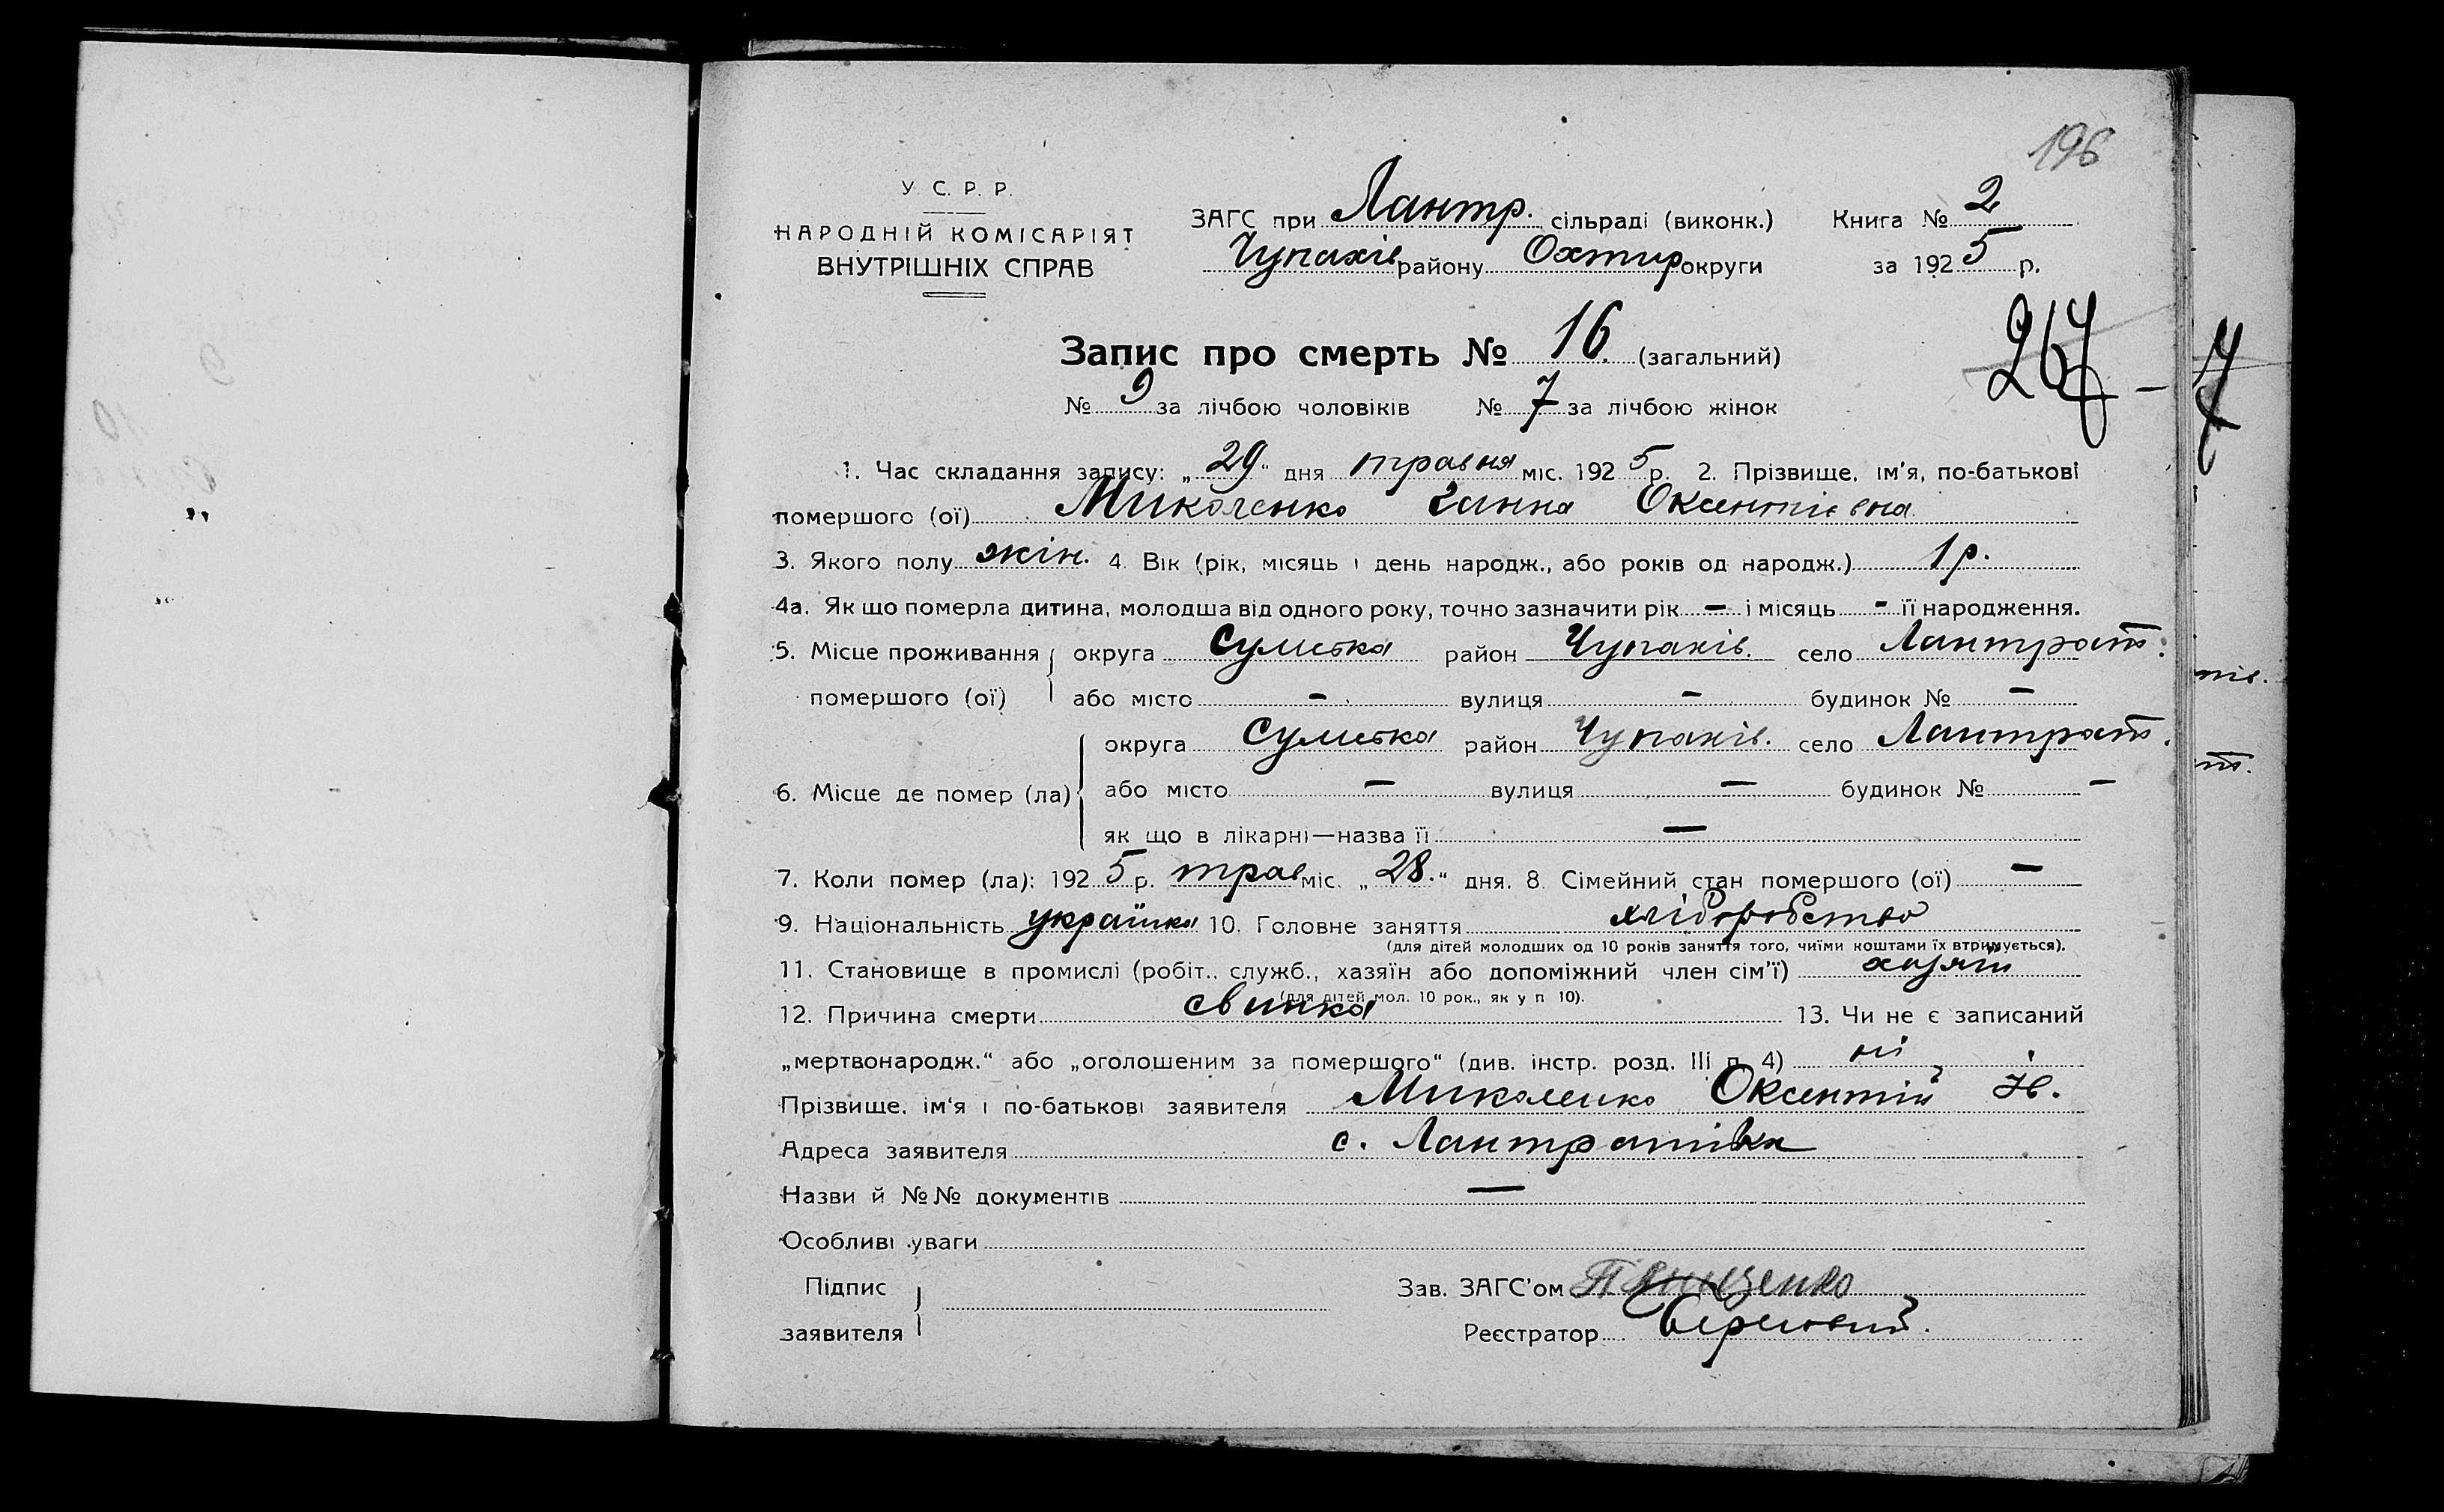 196
У. С. Р. Р.
НАРОДНІЙ КОМІСАРІЯТ
ВНУТРІШНІХ СПРАВ
ЗАГС при Лантр. сільраді (виконк.) Книга № 2
Чупахів району Охтир округи за 1925 р.
Запис про смерть № 16. (загальний)
267 - 7
№ 9 за лічбою чоловіків № 7 за лічбою жінок
1. Час складання запису: „29“ дня травня міс. 1925 р. 2. Прізвище, ім'я, по-батькові
помершого (ої) Миколенко Ганна Оксентіевна
3. Якого полу жін. 4. Вік (рік, місяць і день народж., або років од народж.) 1 р.
4а. Як що померла дитина, молодша від одного року, точно зазначити рік - і місяць - її народження.
5. Місце проживання округа Сумська район Чупахів. село Лантрат.
помершого (ої) або місто - вулиця - будинок № -
округа Сумська район Чупахів. село Лантрат.
6. Місце де помер (ла) або місто - вулиця - будинок № -
як що в лікарні—назва її -
7. Коли помер (ла): 1925 р. трав міс. „28.“ дня. 8. Сімейний стан помершого (ої) -
9. Національність українка 10. Головне заняття хліборобство
(для дітей молодших од 10 років заняття того, чиїми коштами їх втримується).
11. Становище в промислі (робіт., служб., хазяїн або допоміжний член сім'ї) хазяїн
(для дітей мол. 10 рок., як у п 10).
12. Причина смерти свинка 13. Чи не є записаний
„мертвонародж.“ або „оголошеним за помершого“ (див. інстр. розд. III п. 4) ні
Прізвище, ім'я і по-батькові заявителя Миколенко Оксентій
Адреса заявителя с. Лантратівка
Назви й №№ документів -
Особливі уваги
Підпис
заявителя
Зав. ЗАГС'ом
Реєстратор